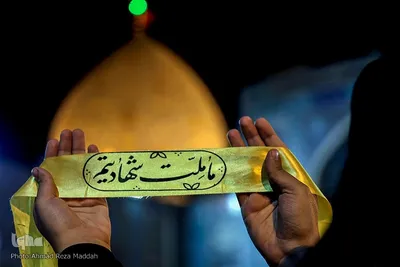 ما مِلَّت شهادتیم
iqna
Photo:Ahmad Reza Maddah